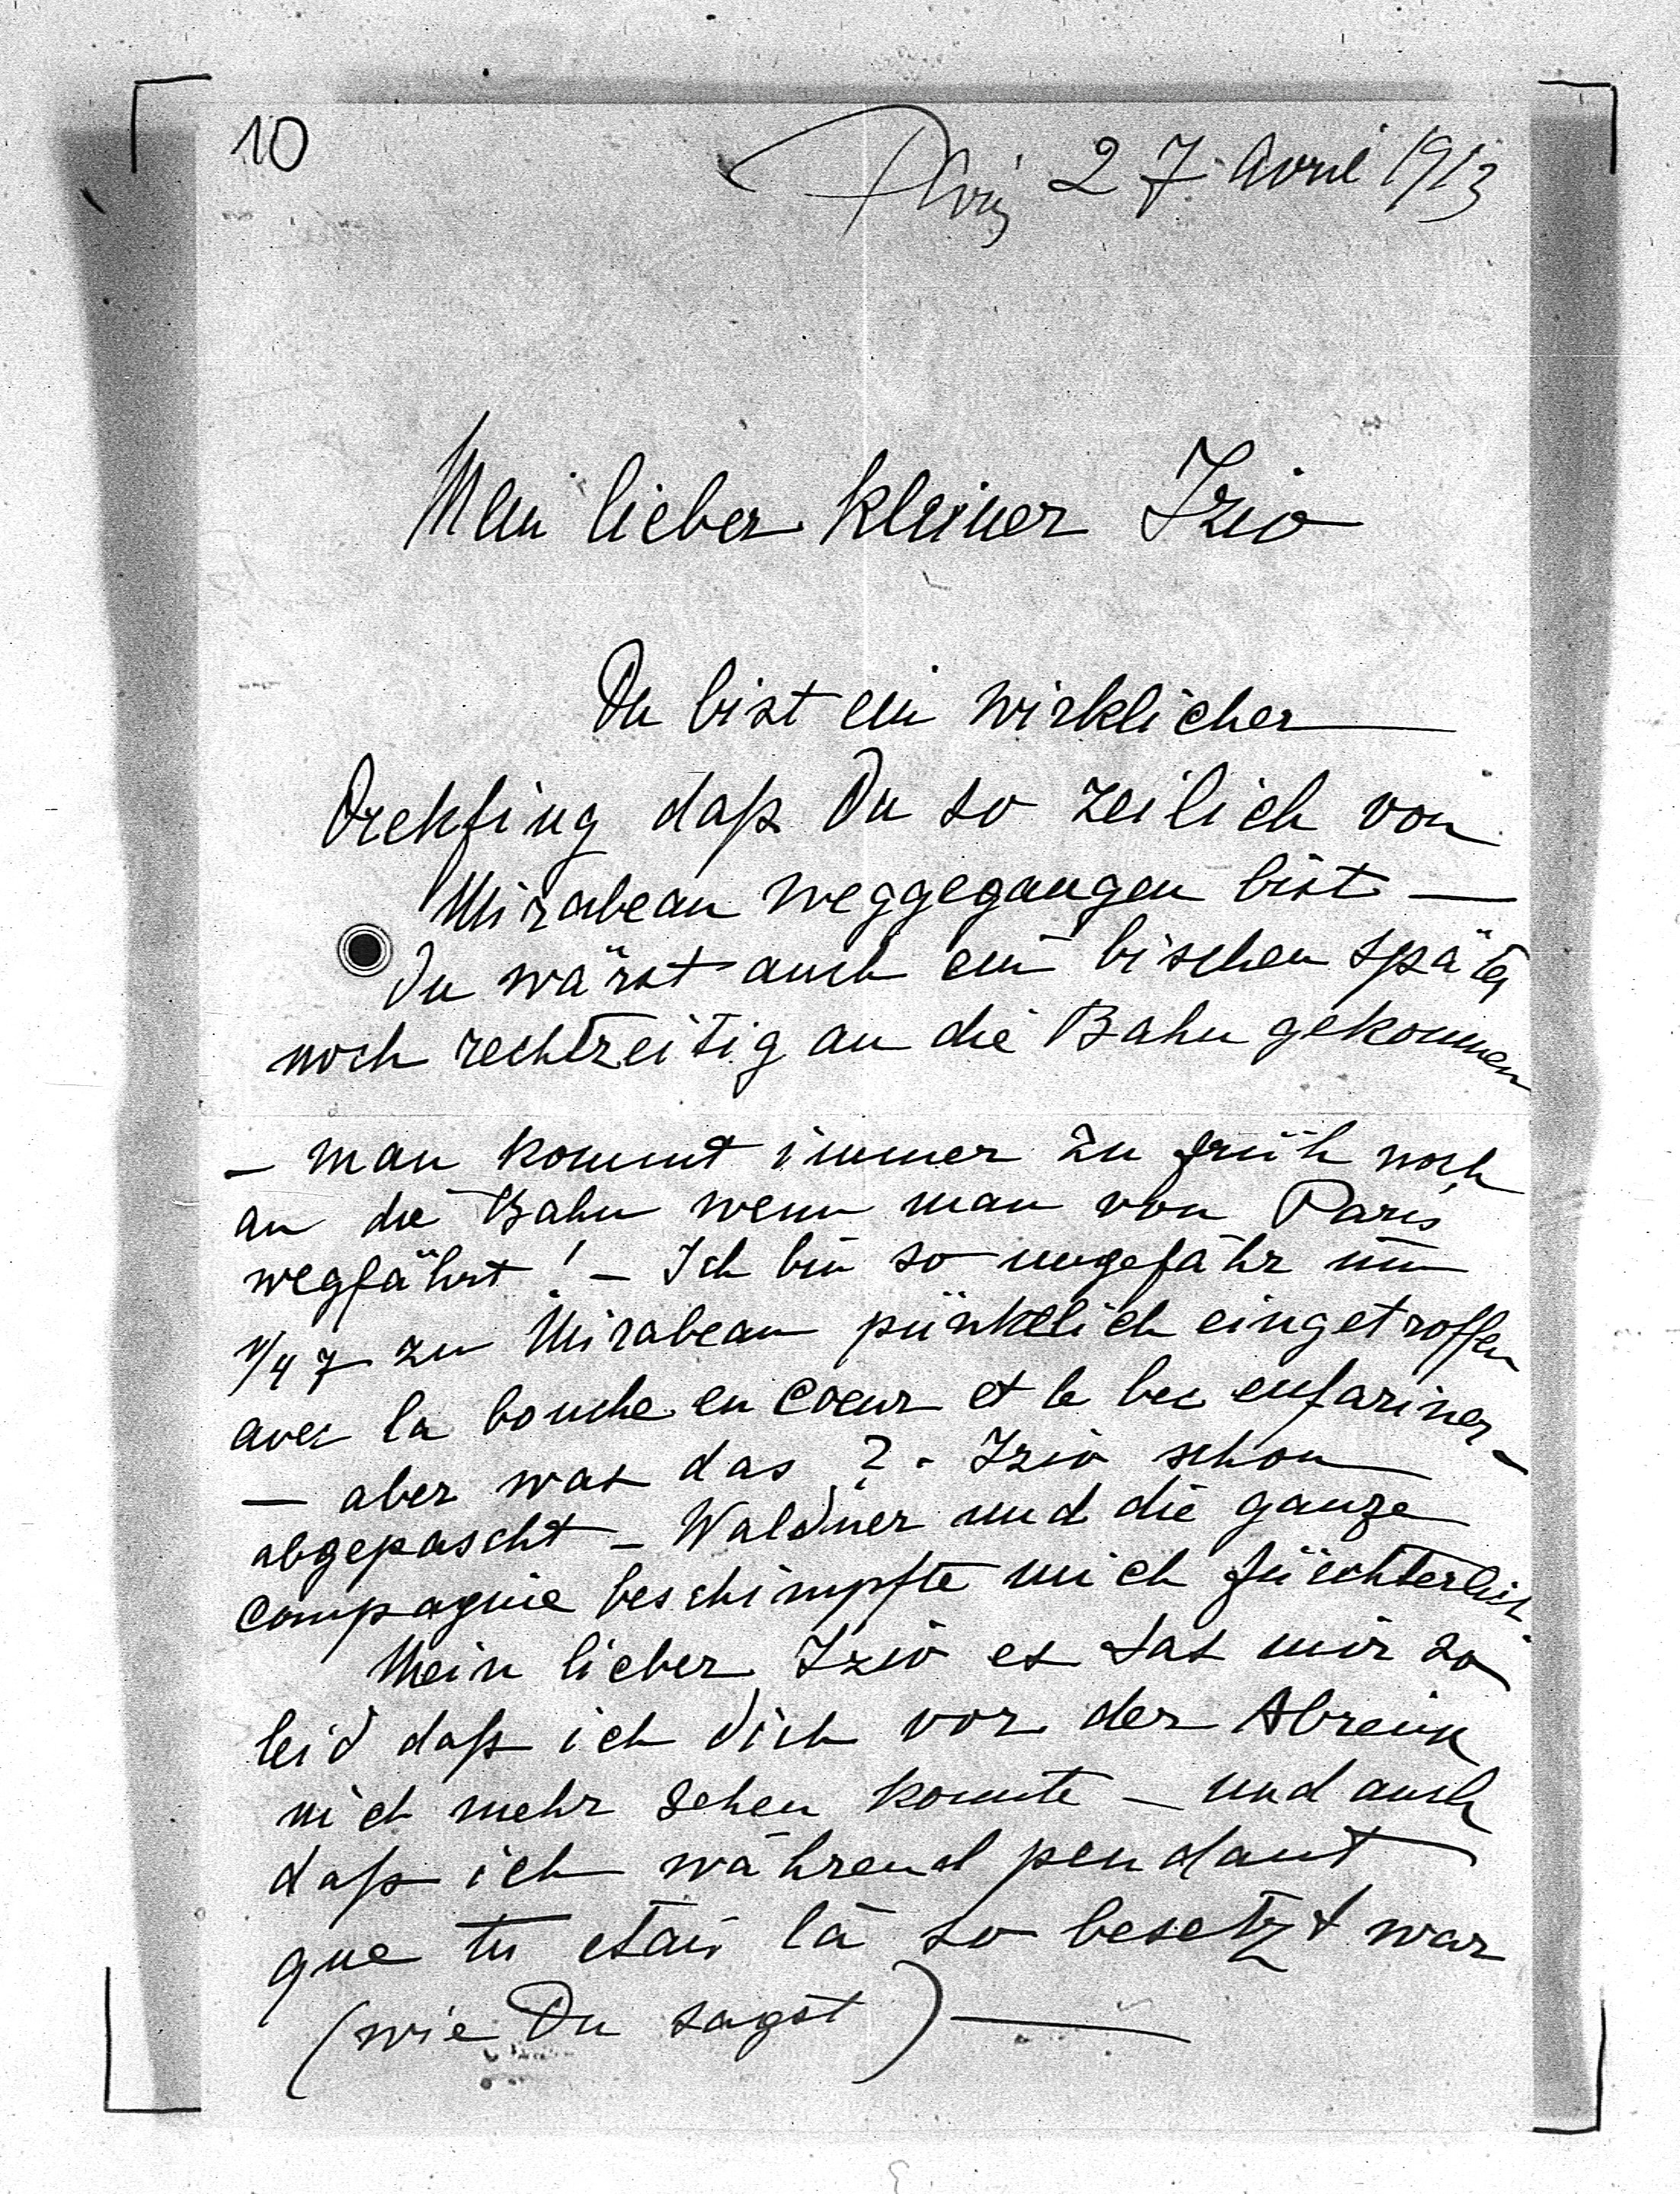 10
Paris 27 Avril 1913
Mein lieber kleiner Izio
Du bist ein wirklicher
Drekfing daß Du so zeilich von
Mirabeau weggegangen bist —
Du wärst auch ein bischen später
noch rechtzeitig an die Bahn gekommen
– man kommt immer zu früh noch
an die Bahn wenn man von Paris
wegfährt! – Ich bin so ungefähr um
1/4 7 zu Mirabeau pünktlich eingetroffen
avec la bouche en coeur et le bec enfariner –
— aber was das ? - Izio schon
abgepascht – Waldner und die ganze
Compagnie beschimpfte mich fürchterlich
Mein lieber Izio es tat mir so
leid daß ich Dich vor der Abreise
nich mehr sehen konnte – und auch
daß ich während pendant
que tu etais là so besetzt war
(wie Du sagst) —